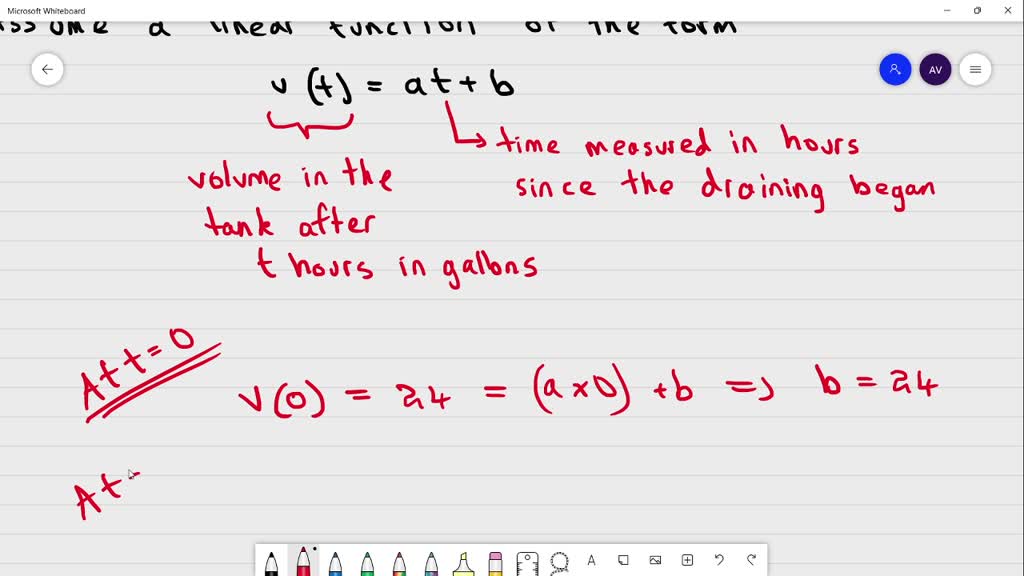 Microsoft Whiteboard
assume a linear function of the form
AV
v(t) = at + b
time measured in hours
since the draining began
volume in the
tank after
t hours in gallons
At t = 0
V(0) = 24 = (a x 0) + b => b = 24
At
A